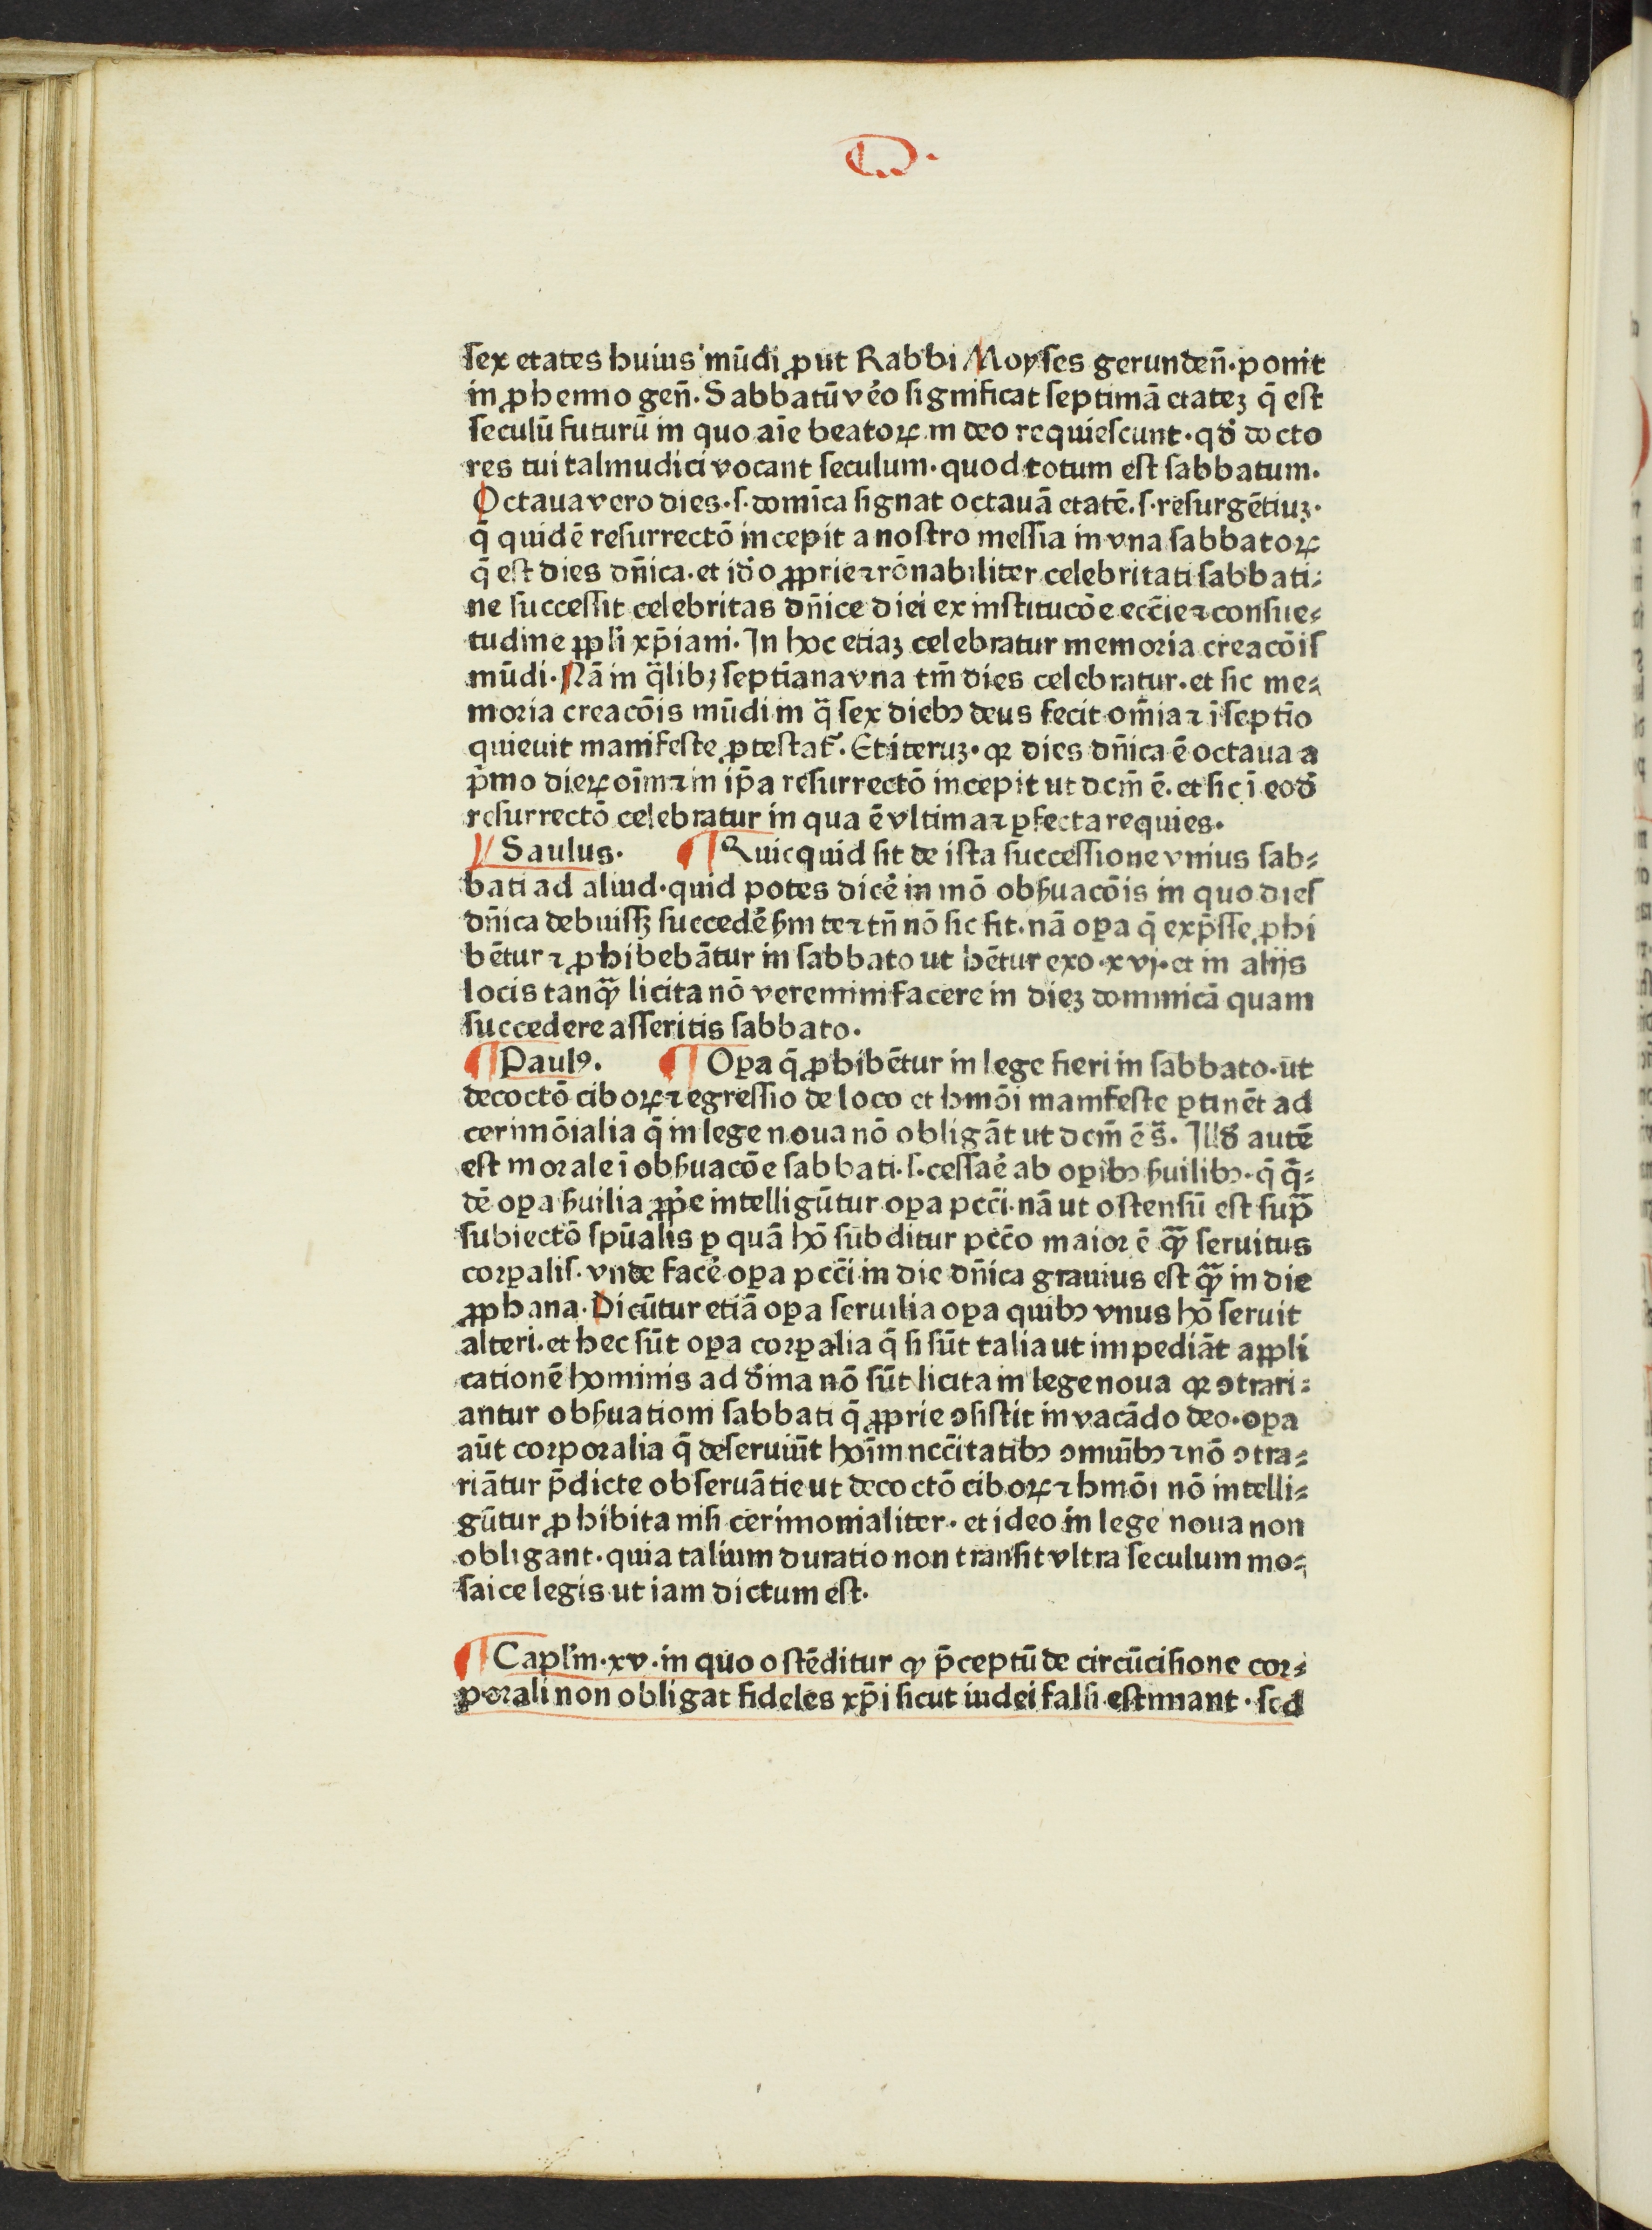 ſex etates huius mūdi ꝓut Rabbi Moyſes gerundeñ·ponit
in ꝓhemio geñ·Sabbatū v̄eo ſignificat ſeptimā etateꝫ q̄ eſt
ſeculū futurū in quo aīe beatoꝝ in deo requieſcunt·qđ docto
res tui talmudici vocant ſeculum·quod totum eſt ſabbatum·
Octaua vero dies·ſ·domīca ſignat octauā etatē·ſ·reſurgētiuꝫ·
q̄ quidē reſurrectō incepit a noſtro meſſia in vna ſabbatoꝝ
q̄ eſt dies dñica·et iđo ꝓprie ⁊ rōnabiliter celebritati ſabbati⸗
ne ſucceſſit celebritas dñice diei ex inſtitucōe eccīe ⁊ conſue⸗
tudine ꝓpłi xp̄iani·In hoc etiaꝫ celebratur memoria creacōiſ
mūdi·Nā in q̄libꝫ ſeptīana vna tm̄ dies celebratur·et ſic me⸗
moria creacōis mūdi in q̄ ſex diebꝰ deus fecit om̄ia ⁊ ī ſeptīo
quieuit manifeſte ꝓteſtat᷑·Et iteruꝫ·qꝛ dies dñica ē octaua a
p̄mo dieꝝ oīm ⁊ in ip̄a reſurrectō incepit ut dcm̄ ē·et ſic ī eođ
reſurrectō celebratur in qua ē vltima ⁊ ꝑfecta requies·
¶ Saulus· ¶ Quicquid ſit de iſta ſucceſſione vnius ſab⸗
bati ad aliud·quid potes dicē in mō obẜuacōis in quo dieſ
dñica debuiſſꝫ ſuccedē ẜm te ⁊ tñ nō ſic fit·nā oꝑa q̄ exp̄ſſe ꝓhi
bētur ⁊ ꝓhibebātur in ſabbato ut hētur exo·xvj·et in alijs
locis tanꝙ̄ licita nō veremini facere in dieꝫ dominicā quam
ſuccedere aſſeritis ſabbato·
¶ Paulꝰ· ¶ Oꝑa q̄ ꝓhibētur in lege fieri in ſabbato·ut
decoctō ciboꝝ ⁊ egreſſio de loco et hmōi manifeſte ꝑtinēt ad
cerimōialia q̄ in lege noua nō obligāt ut dcm̄ ē s̄·Illđ autē
eſt morale ī obẜuacōe ſabbati·ſ·ceſſaē ab oꝑibꝰ ẜuilibꝰ·q̄ q̄⸗
dē oꝑa ẜuilia ꝓpe intelligūtur oꝑa pcc̄i·nā ut oſtenſū eſt ſup̄
ſubiectō ſpūalis ꝑ quā hō ſubditur pcc̄o maior ē ꝙ̄ ſeruitus
corꝑaliſ·vnde facē oꝑa pcc̄i in die dñica grauius eſt ꝙ̄ in die
ꝓphana·Dicūtur etiā oꝑa ſeruilia oꝑa quibꝰ vnus hō ſeruit
alteri·et hec ſūt oꝑa corꝑalia q̄ ſi ſūt talia ut impediāt appli
cationē hominis ad đina nō ſūt licita in lege noua qꝛ ↄtrari⸗
antur obẜuationi ſabbati q̄ ꝓprie ↄſiſtit in vacādo deo·oꝑa
aūt corporalia q̄ deſeruiūt hoīm neccītatibꝰ ↄmuībꝰ ⁊ nō ↄtra⸗
riātur p̄dicte obſeruātie ut decoctō ciboꝝ ⁊ hmōi nō intelli⸗
gūtur ꝓhibita niſi cerimonialiter·et ideo in lege noua non
obligant·quia talium duratio non tranſit vltra ſeculum mo⸗
ſaice legis ut iam dictum eſt·
¶ Capłm·xv·in quo oſtēditur ꝙ p̄ceptū de circūciſione cor⸗
porali non obligat fideles xp̄i ſicut iudei falſi eſtimant·ſed